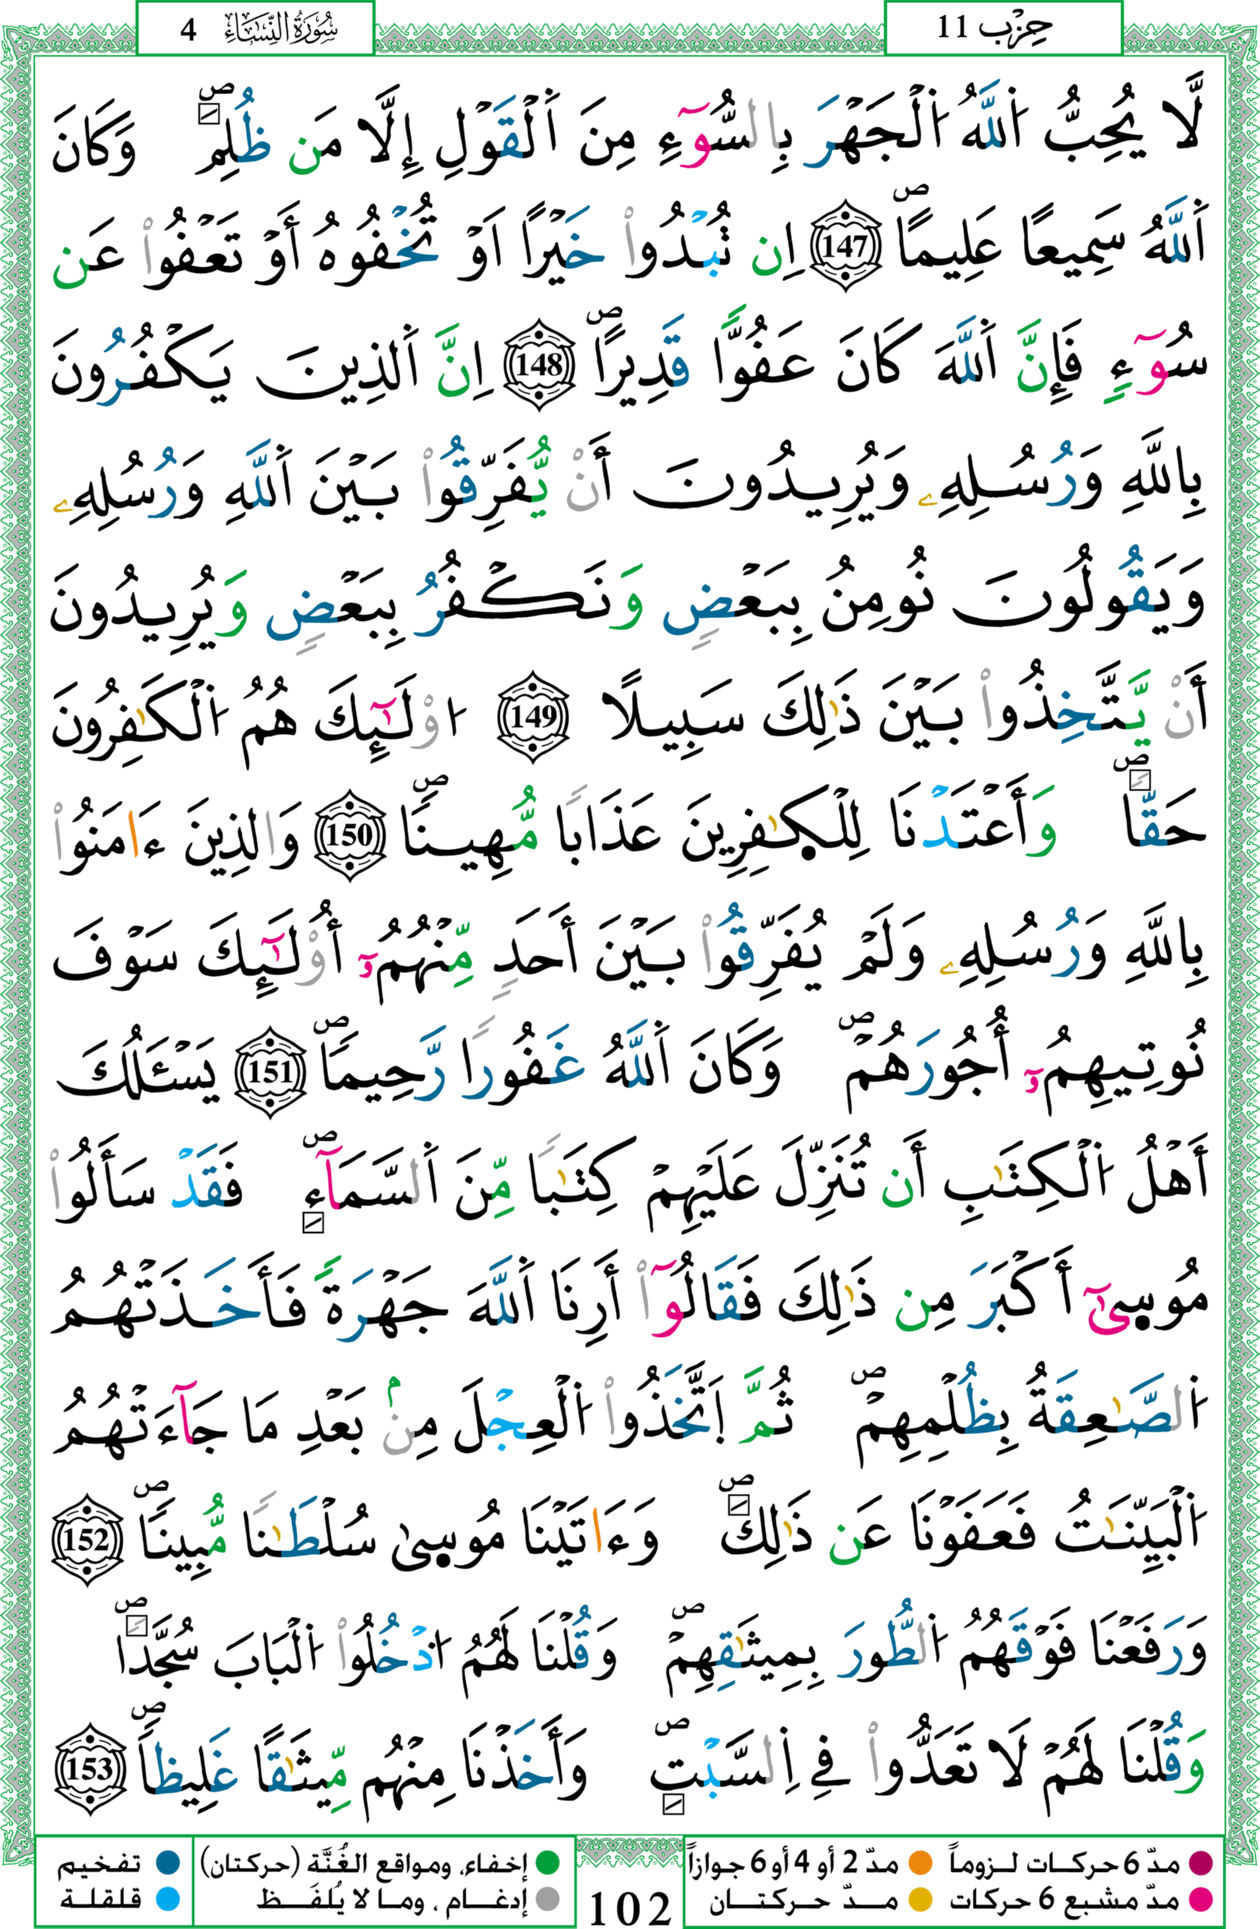 حِزْب 11
سُورَةُ النِّسَاءِ 4
لَّا يُحِبُّ اَ۬للَّهُ اُ۬لْجَهْرَ بِالسُّوٓءِ مِنَ اَ۬لْقَوْلِ إِلَّا مَن ظُلِمَۖ وَكَانَ
اَ۬للَّهُ سَمِيعًا عَلِيمًاۖ 147 اِن تُبْدُواْ خَيْرًا اَوْ تُخْفُوهُ أَوْ تَعْفُواْ عَن
سُوٓءٍ فَإِنَّ اَ۬للَّهَ كَانَ عَفُوًّا قَدِيرًاۖ 148 اِنَّ اَ۬لذِينَ يَكْفُرُونَ
بِاللَّهِ وَرُسُلِهِۦ وَيُرِيدُونَ أَنْ يُّفَرِّقُواْ بَيْنَ اَ۬للَّهِ وَرُسُلِهِۦ
وَيَقُولُونَ نُومِنُ بِبَعْضٍ وَنَكْفُرُ بِبَعْضٍ وَيُرِيدُونَ
أَنْ يَّتَّخِذُواْ بَيْنَ ذَٰلِكَ سَبِيلًا 149 ا۟وْلَٰٓئِكَ هُمُ اُ۬لْكَٰفِرُونَ
حَقّٗاۖ وَأَعْتَدْنَا لِلْكٰ۪فِرِينَ عَذَابٗا مُّهِينٗاۖ 150 وَالذِينَ ءَامَنُواْ
بِاللَّهِ وَرُسُلِهِۦ وَلَمْ يُفَرِّقُواْ بَيْنَ أَحَدٖ مِّنْهُمُۥٓ أُوْلَٰٓئِكَ سَوْفَ
نُوتِيهِمُۥٓ أُجُورَهُمْۖ وَكَانَ اَ۬للَّهُ غَفُورٗا رَّحِيمٗاۖ 151 يَسْـَٔلُكَ
أَهْلُ اُ۬لْكِتَٰبِ أَن تُنَزِّلَ عَلَيْهِمْ كِتَٰبٗا مِّنَ اَ۬لسَّمَآءِۖ فَقَدْ سَأَلُواْ
مُوس۪ىٰٓ أَكْبَرَ مِن ذَٰلِكَ فَقَالُوٓاْ أَرِنَا اَ۬للَّهَ جَهْرَةٗ فَأَخَذَتْهُمُ
اُ۬لصَّٰعِقَةُ بِظُلْمِهِمْۖ ثُمَّ اَتَّخَذُواْ اُ۬لْعِجْلَ مِنۢ بَعْدِ مَا جَآءَتْهُمُ
اُ۬لْبَيِّنَٰتُ فَعَفَوْنَا عَن ذَٰلِكَۖ وَءَاتَيْنَا مُوس۪ىٰ سُلْطَٰنٗا مُّبِينٗاۖ 152
وَرَفَعْنَا فَوْقَهُمُ اُ۬لطُّورَ بِمِيثَٰقِهِمْۖ وَقُلْنَا لَهُمُ ا۟دْخُلُواْ اُ۬لْبَابَ سُجَّدٗاۖ
وَقُلْنَا لَهُمْ لَا تَعَدُّواْ فِي اِ۬لسَّبْتِۖ وَأَخَذْنَا مِنْهُم مِّيثَٰقًا غَلِيظٗاۖ 153
مدّ 6 حركات لـزوماً
مدّ 2 أو 4 أو 6 جوازاً
إخفاء، ومواقع الغُنَّة (حركتان)
تفخيم
مدّ مشبع 6 حركات
مـــدّ حـــركتـــان
إدغـــام ، ومـا لا يُلفَــظ
قلقلة
102